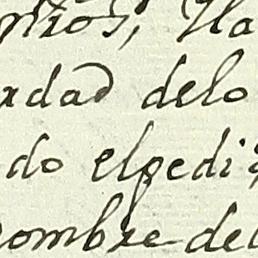 rdad delo
do elpedi
ombre del